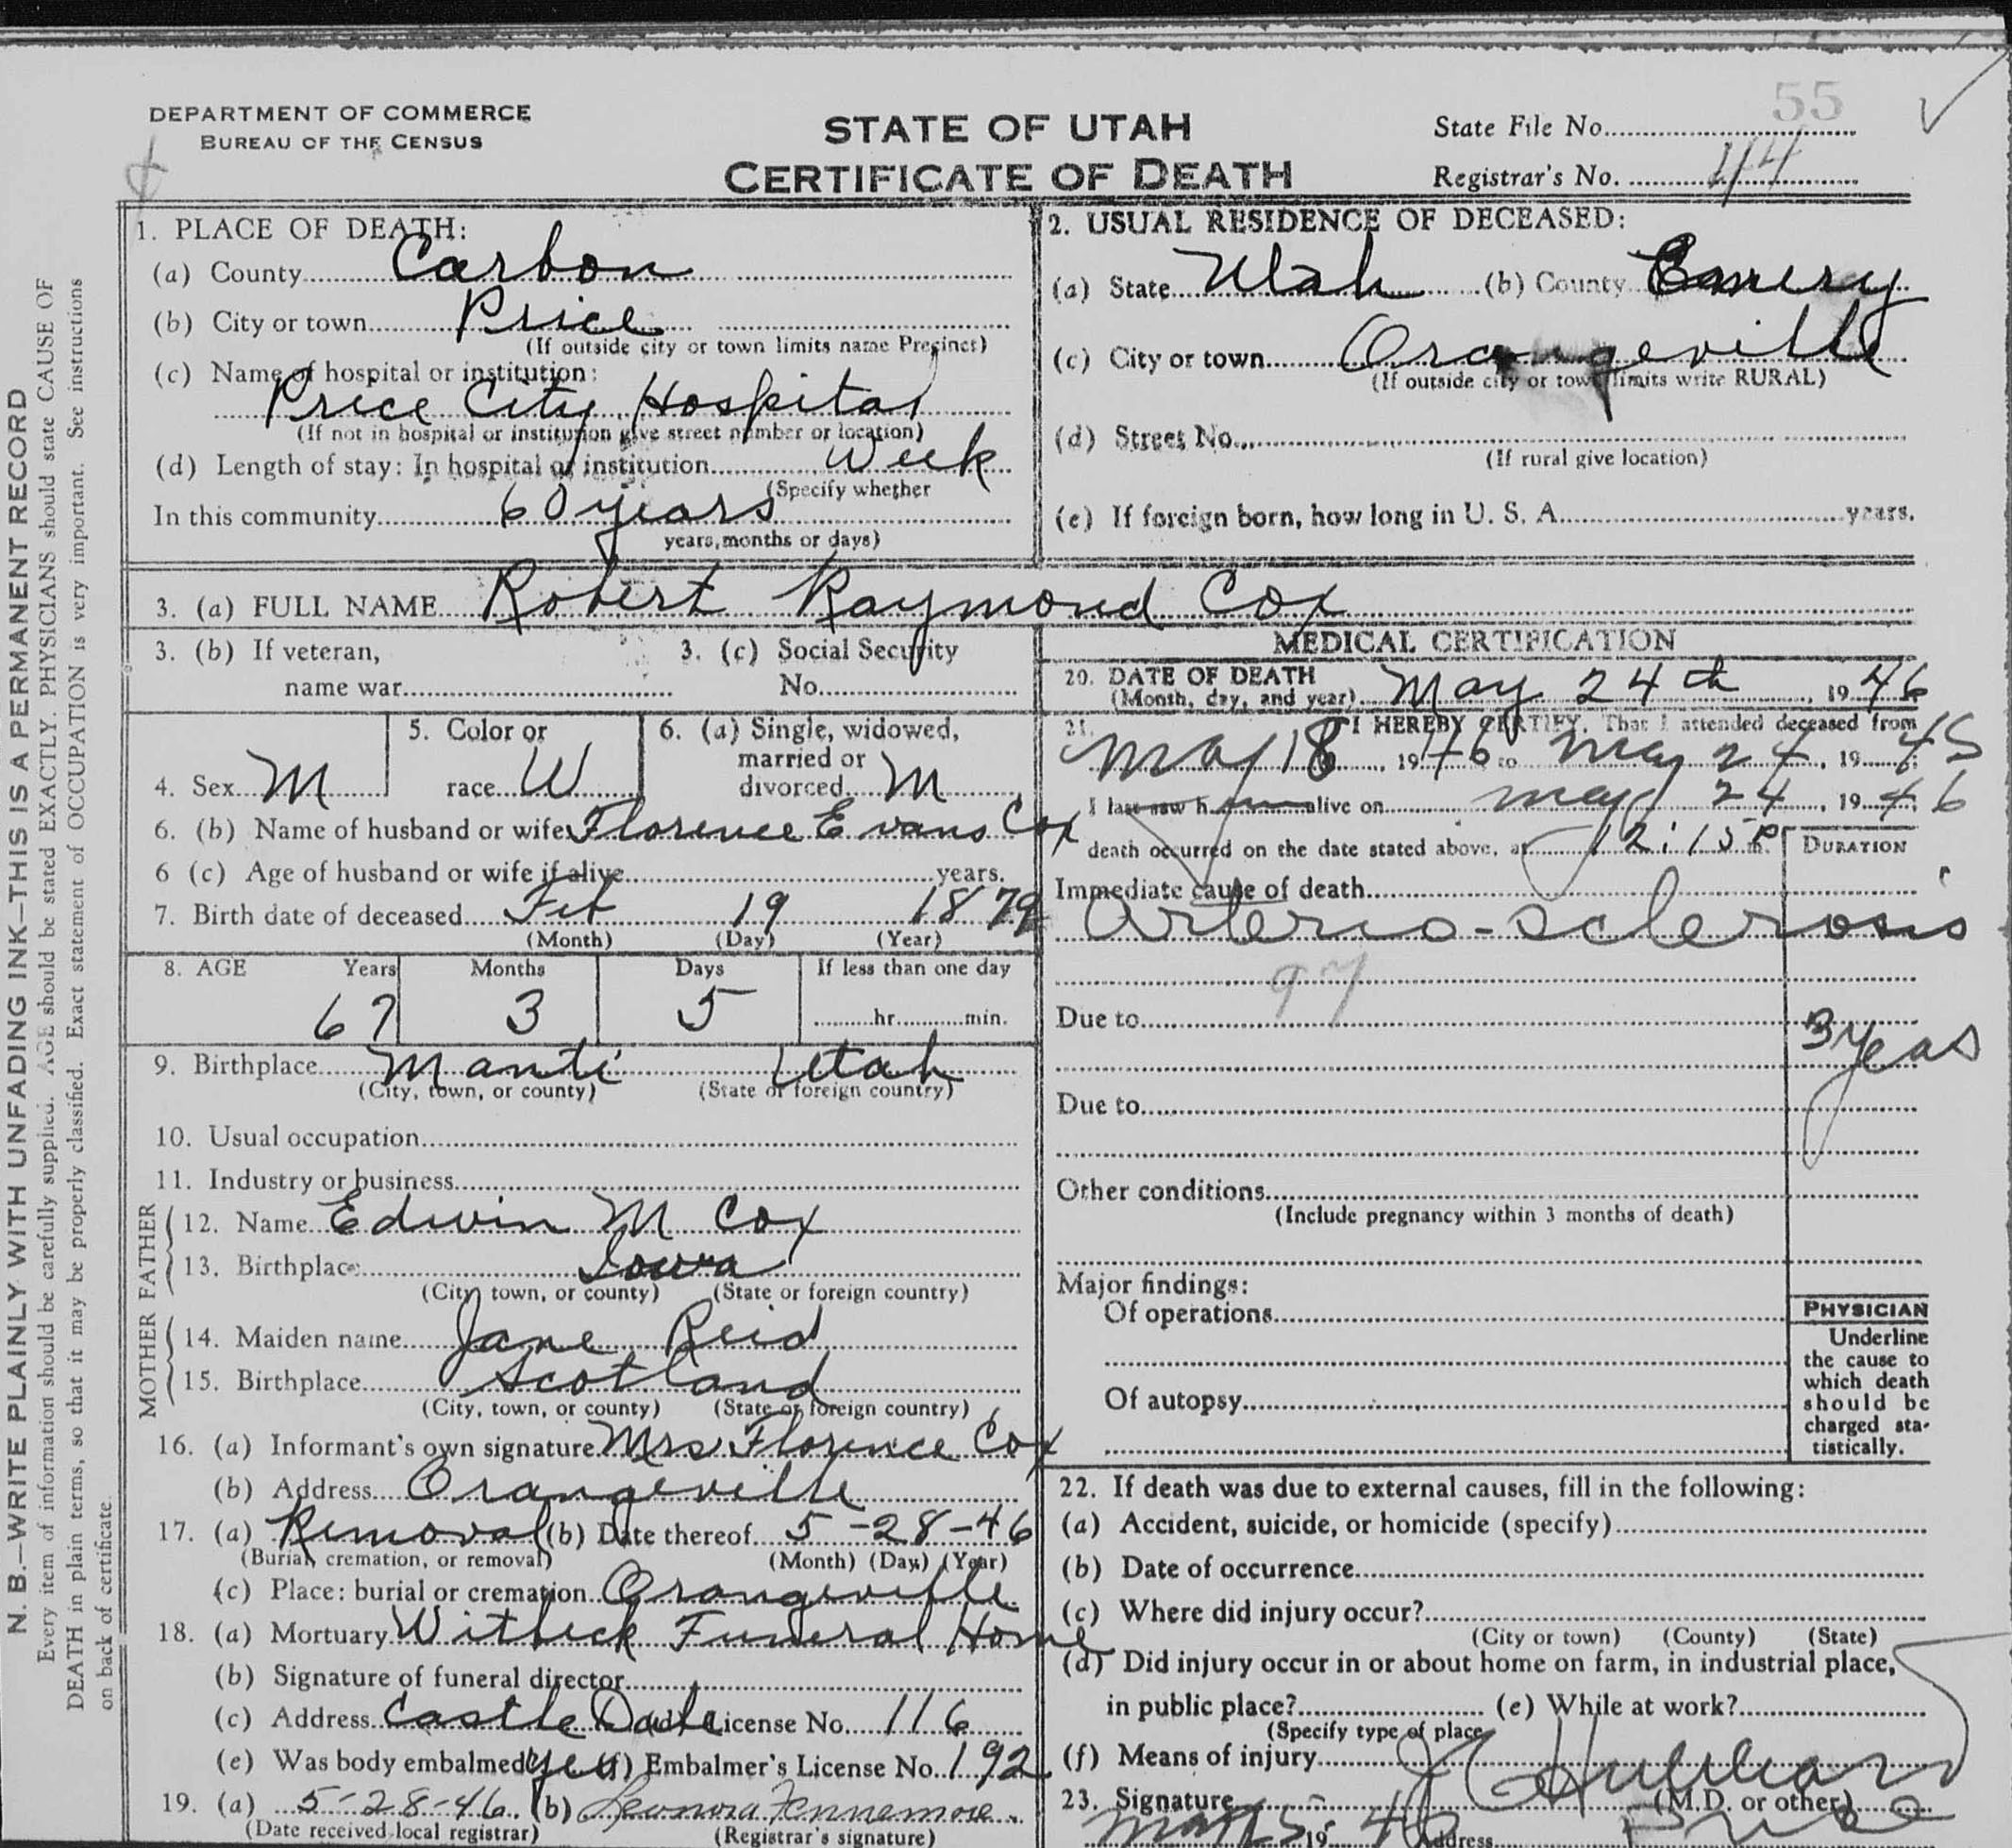 55
DEPARTMENT OF COMMERCE
BUREAU OF THE CENSUS
STATE OF UTAH
CERTIFICATE OF DEATH
State File No.
Registrar's No. 44
N. B.—WRITE PLAINLY WITH UNFADING INK—THIS IS A PERMANENT RECORD
Every item of information should be carefully supplied. AGE should be stated EXACTLY. PHYSICIANS should state CAUSE OF
DEATH in plain terms, so that it may be properly classified. Exact statement of OCCUPATION is very important. See instructions
on back of certificate.
1. PLACE OF DEATH:
(a) County Carbon
(b) City or town Price
(If outside city or town limits name Precinct)
(c) Name of hospital or institution:
Price City Hospital
(If not in hospital or institution give street number or location)
(d) Length of stay: In hospital or institution Week
(Specify whether
In this community 60 years
years, months or days)
2. USUAL RESIDENCE OF DECEASED:
(a) State Utah (b) County Emery
(c) City or town Orangeville
(If outside city or town limits write RURAL)
(d) Street No.
(If rural give location)
(e) If foreign born, how long in U. S. A. years.
3. (a) FULL NAME Robert Raymond Cox
3. (b) If veteran,
name war
3. (c) Social Security
No.
4. Sex M
5. Color or
race W
6. (a) Single, widowed,
married or
divorced M
6. (b) Name of husband or wife Florence Evans Cox
6 (c) Age of husband or wife if alive years.
7. Birth date of deceased Feb 19 1879
(Month) (Day) (Year)
8. AGE Years Months Days If less than one day
67 3 5 hr. min.
9. Birthplace Manti Utah
(City, town, or county) (State or foreign country)
10. Usual occupation
11. Industry or business
FATHER
12. Name Edwin M Cox
13. Birthplace Iowa
(City, town, or county) (State or foreign country)
MOTHER
14. Maiden name Jane Reid
15. Birthplace Scotland
(City, town, or county) (State or foreign country)
16. (a) Informant's own signature Mrs Florence Cox
(b) Address Orangeville
17. (a) Removal (b) Date thereof 5-28-46
(Burial, cremation, or removal) (Month) (Day) (Year)
(c) Place: burial or cremation Orangeville
18. (a) Mortuary Witbeck Funeral Home
(b) Signature of funeral director
(c) Address Castle Dale License No. 116
(e) Was body embalmed yes (f) Embalmer's License No. 192
19. (a) 5-28-46 (b) Leonora Fennemore
(Date received local registrar) (Registrar's signature)
MEDICAL CERTIFICATION
20. DATE OF DEATH
(Month, day, and year) May 24th, 1946
21. I HEREBY CERTIFY, That I attended deceased from
May 18, 1946 to May 24, 1945
I last saw h alive on May 24, 1946
death occurred on the date stated above, at 12:15 P m.
DURATION
Immediate cause of death
Arterio-sclerosis
97
Due to
3 yeas
Due to
Other conditions
(Include pregnancy within 3 months of death)
Major findings:
Of operations
Of autopsy
PHYSICIAN
Underline
the cause to
which death
should be
charged sta-
tistically.
22. If death was due to external causes, fill in the following:
(a) Accident, suicide, or homicide (specify)
(b) Date of occurrence
(c) Where did injury occur?
(City or town) (County) (State)
(d) Did injury occur in or about home on farm, in industrial place,
in public place? (e) While at work?
(Specify type of place
(f) Means of injury
23. Signature Hubbard
(M.D. or other)
19 Address Price